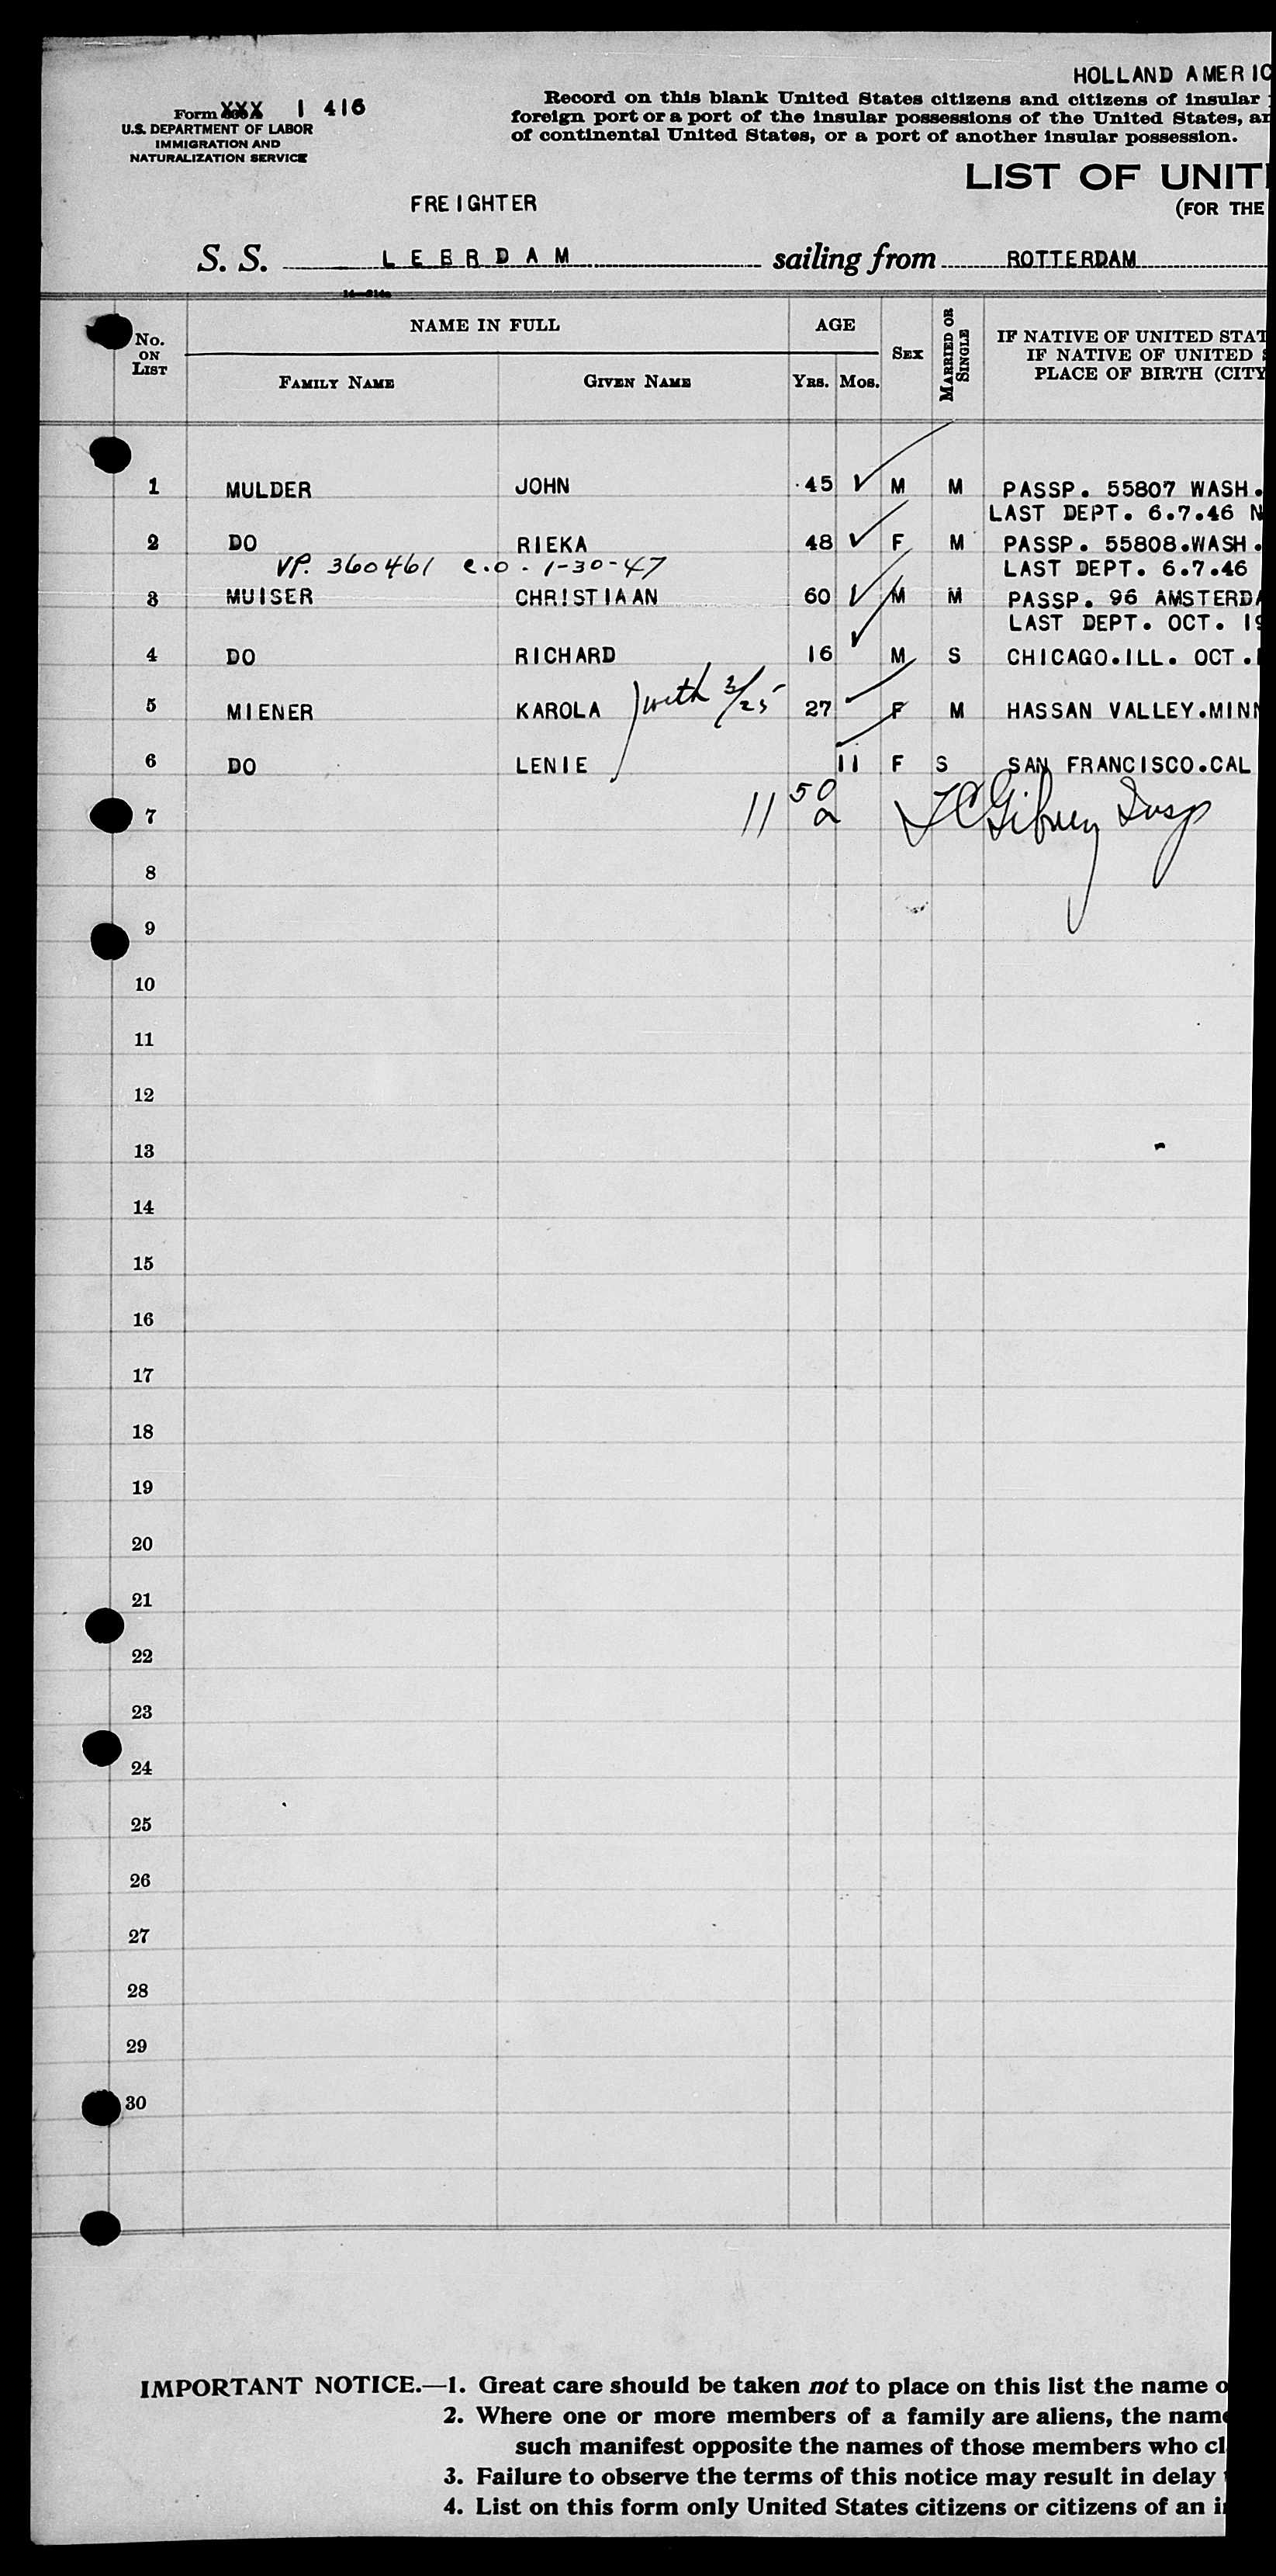 HOLLAND AMERIC
Form XXX I 416
U.S. DEPARTMENT OF LABOR
IMMIGRATION AND
NATURALIZATION SERVICE
Record on this blank United States citizens and citizens of insular
foreign port or a port of the insular possessions of the United States, an
of continental United States, or a port of another insular possession.
LIST OF UNIT
(FOR THE
FREIGHTER
S. S. LEERDAM sailing from ROTTERDAM
No. ON LIST
NAME IN FULL
FAMILY NAME GIVEN NAME
AGE
YRS. MOS.
SEX
MARRIED OR SINGLE
IF NATIVE OF UNITED STAT
IF NATIVE OF UNITED S
PLACE OF BIRTH (CITY
1 MULDER JOHN 45 M M PASSP. 55807 WASH.
LAST DEPT. 6.7.46 N
2 DO RIEKA 48 F M PASSP. 55808.WASH.
VP. 360461 e.o. 1-30-47 LAST DEPT. 6.7.46
3 MUISER CHRISTIAAN 60 M M PASSP. 96 AMSTERDA
LAST DEPT. OCT. 19
4 DO RICHARD 16 M S CHICAGO.ILL. OCT.
5 MIENER KAROLA with 3/25 27 F M HASSAN VALLEY.MINN
6 DO LENIE 11 F S SAN FRANCISCO.CAL
7 11 50 a Insp
8
9
10
11
12
13
14
15
16
17
18
19
20
21
22
23
24
25
26
27
28
29
30
IMPORTANT NOTICE.—1. Great care should be taken not to place on this list the name o
2. Where one or more members of a family are aliens, the name
such manifest opposite the names of those members who cl
3. Failure to observe the terms of this notice may result in delay
4. List on this form only United States citizens or citizens of an i